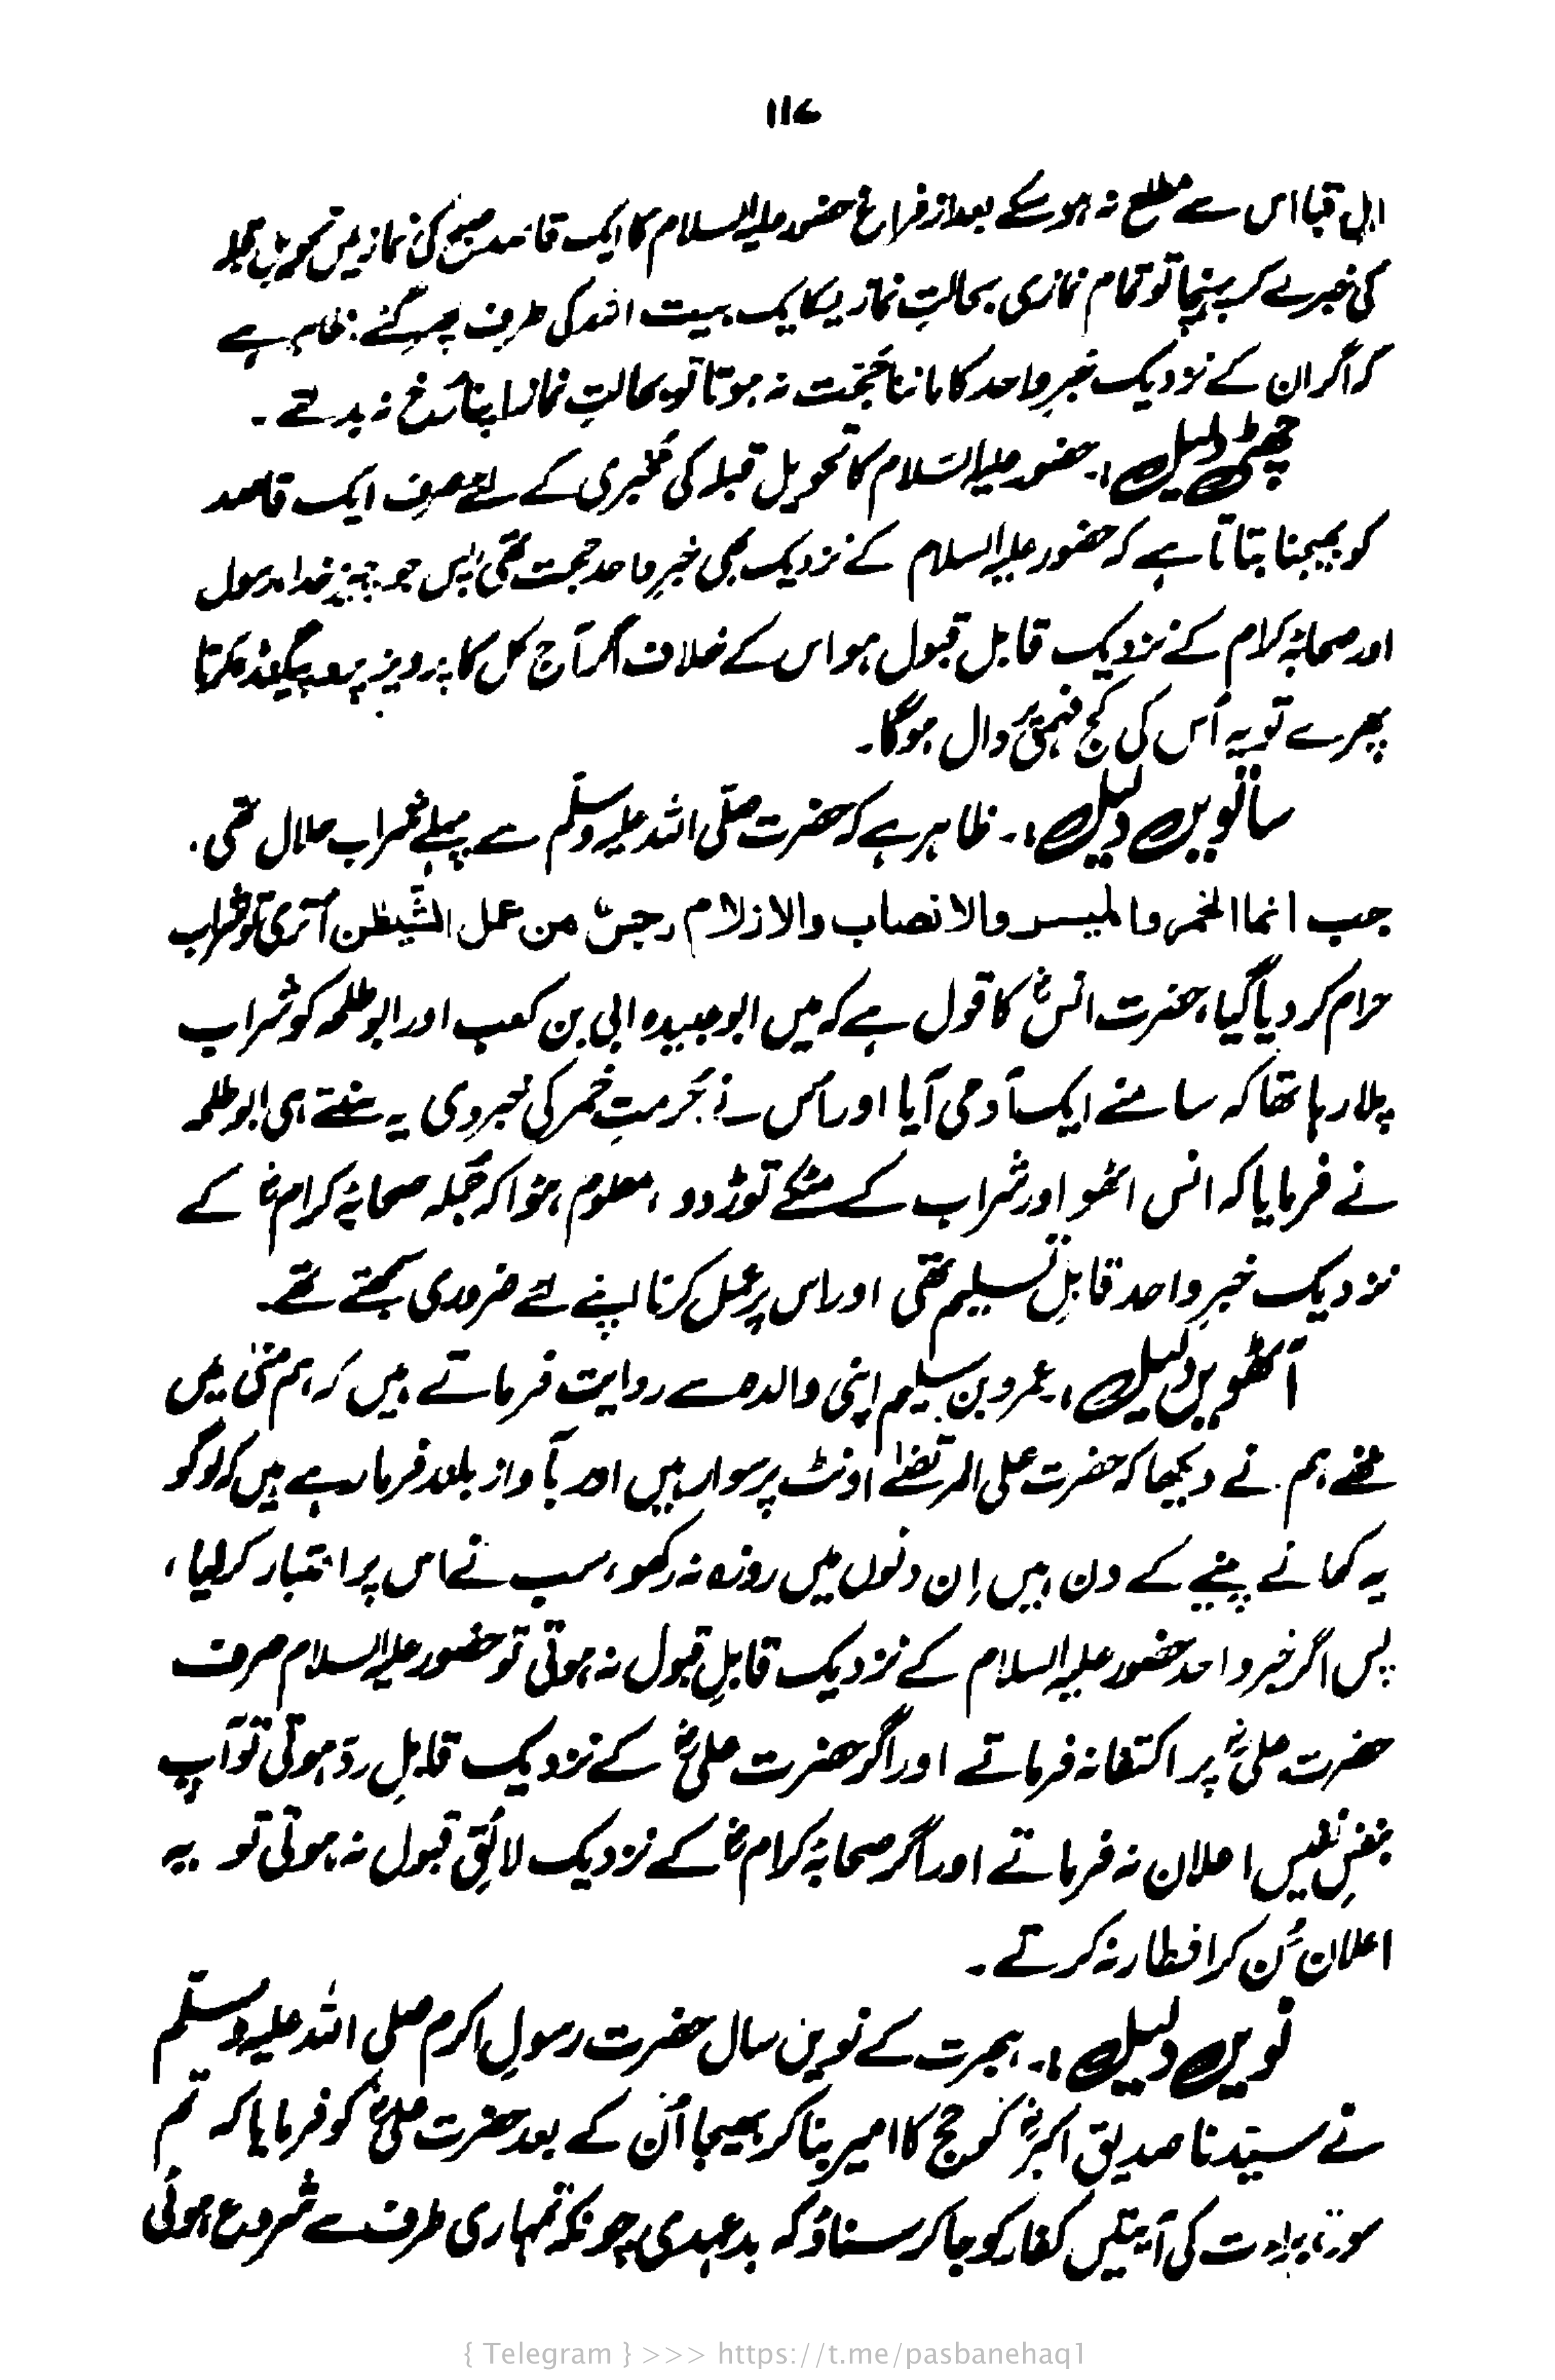 ۱۱۷
اہل قبا اس سے مطلع نہ ہو سکے بعد از فراغ حضور علیہ السلام کا ایک قاصد صبح کی نماز میں تحویل قبلہ
کی خبر لے کر پہنچا تو تمام نمازی بحالتِ نماز یکایک بیت اللہ کی طرف پھر گئے۔ ظاہر ہے
کہ اگر ان کے نزدیک خبرِ واحد کا ماننا حُجّت نہ ہوتا تو بحالتِ نماز اپنا رُخ نہ بدلتے۔
چھٹی دلیل:۔ حضور علیہ السّلام کا تحویل قبلہ کی مُخبری کے لئے صرف ایک قاصد
کو بھیجنا بتاتا ہے کہ حضور علیہ السلام کے نزدیک بھی خبرِ واحد حجت تھی پس جو چیز خدا و رسول
اور صحابۂ کرام کے نزدیک قابل قبول ہو اس کے خلاف اگر آج کل کا پرویز پروپیگنڈہ کرتا
پھرے تو یہ اُس کی کج فہمی پر دال ہوگا۔
ساتویں دلیل:۔ ظاہر ہے کہ حضرت صلّی اللہ علیہ وسلّم سے پہلے شراب حلال تھی۔
جب انما الخمر والمیسر والانصاب والازلام رجسٌ من عمل الشّیطٰن اُتری تو شراب
حرام کر دیا گیا، حضرت انسؓ کا قول ہے کہ میں ابو عبیدہ ابی بن کعب اور ابو طلحہ کو شراب
پلا رہا تھا کہ سامنے ایک آدمی آیا اور اُس نے حُرمتِ خمر کی خبر دی یہ سنتے ہی ابو طلحہ
نے فرمایا کہ انس اٹھو اور شراب کے مٹکے توڑ دو، معلوم ہؤا کہ جُملہ صحابۂ کرامؓ کے
نزدیک خبرِ واحد قابلِ تسلیم تھی اور اس پر عمل کرنا اپنے لئے ضروری سمجھتے تھے۔
آٹھویں دلیل:۔ عمرو بن سلیم اپنی والدہ سے روایت فرماتے ہیں کہ ہم منیٰ میں
تھے ہم نے دیکھا کہ حضرت علی المرتضےٰ اونٹ پر سوار ہیں اور بآواز بلند فرما رہے ہیں کہ لوگو
یہ کھانے پینے کے دن ہیں اِن دنوں میں روزہ نہ رکھو، سب نے اس پر اعتبار کر لیا،
پس اگر خبر واحد حضور علیہ السلام کے نزدیک قابلِ قبول نہ ہوتی تو حضور علیہ السلام صرف
حضرت علیؓ پر اکتفا نہ فرماتے اور اگر حضرت علیؓ کے نزدیک قابلِ ردّ ہوتی تو آپ
بنفسِ نفیس اعلان نہ فرماتے اور اگر صحابۂ کرامؓ کے نزدیک لائقِ قبول نہ ہوتی تو یہ
اعلان سُن کر افطار نہ کرتے۔
نویں دلیل:۔ ہجرت کے نویں سال حضرت رسولِ اکرم صلی اللہ علیہ وسلّم
نے سیّدنا صدیق اکبرؓ کو حج کا امیر بنا کر بھیجا اُن کے بعد حضرت علیؓ کو فرمایا کہ تم
سورۃ براءت کی آیتیں کفار کو جا کر سناؤ کہ بدعہدی چونکہ تمہاری طرف سے شروع ہوئی
{ Telegram } >>> https://t.me/pasbanehaq1